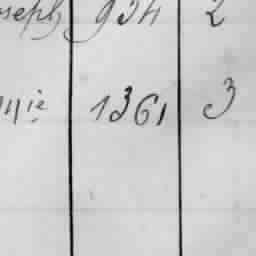 oseph 934 2
nie 1361 3